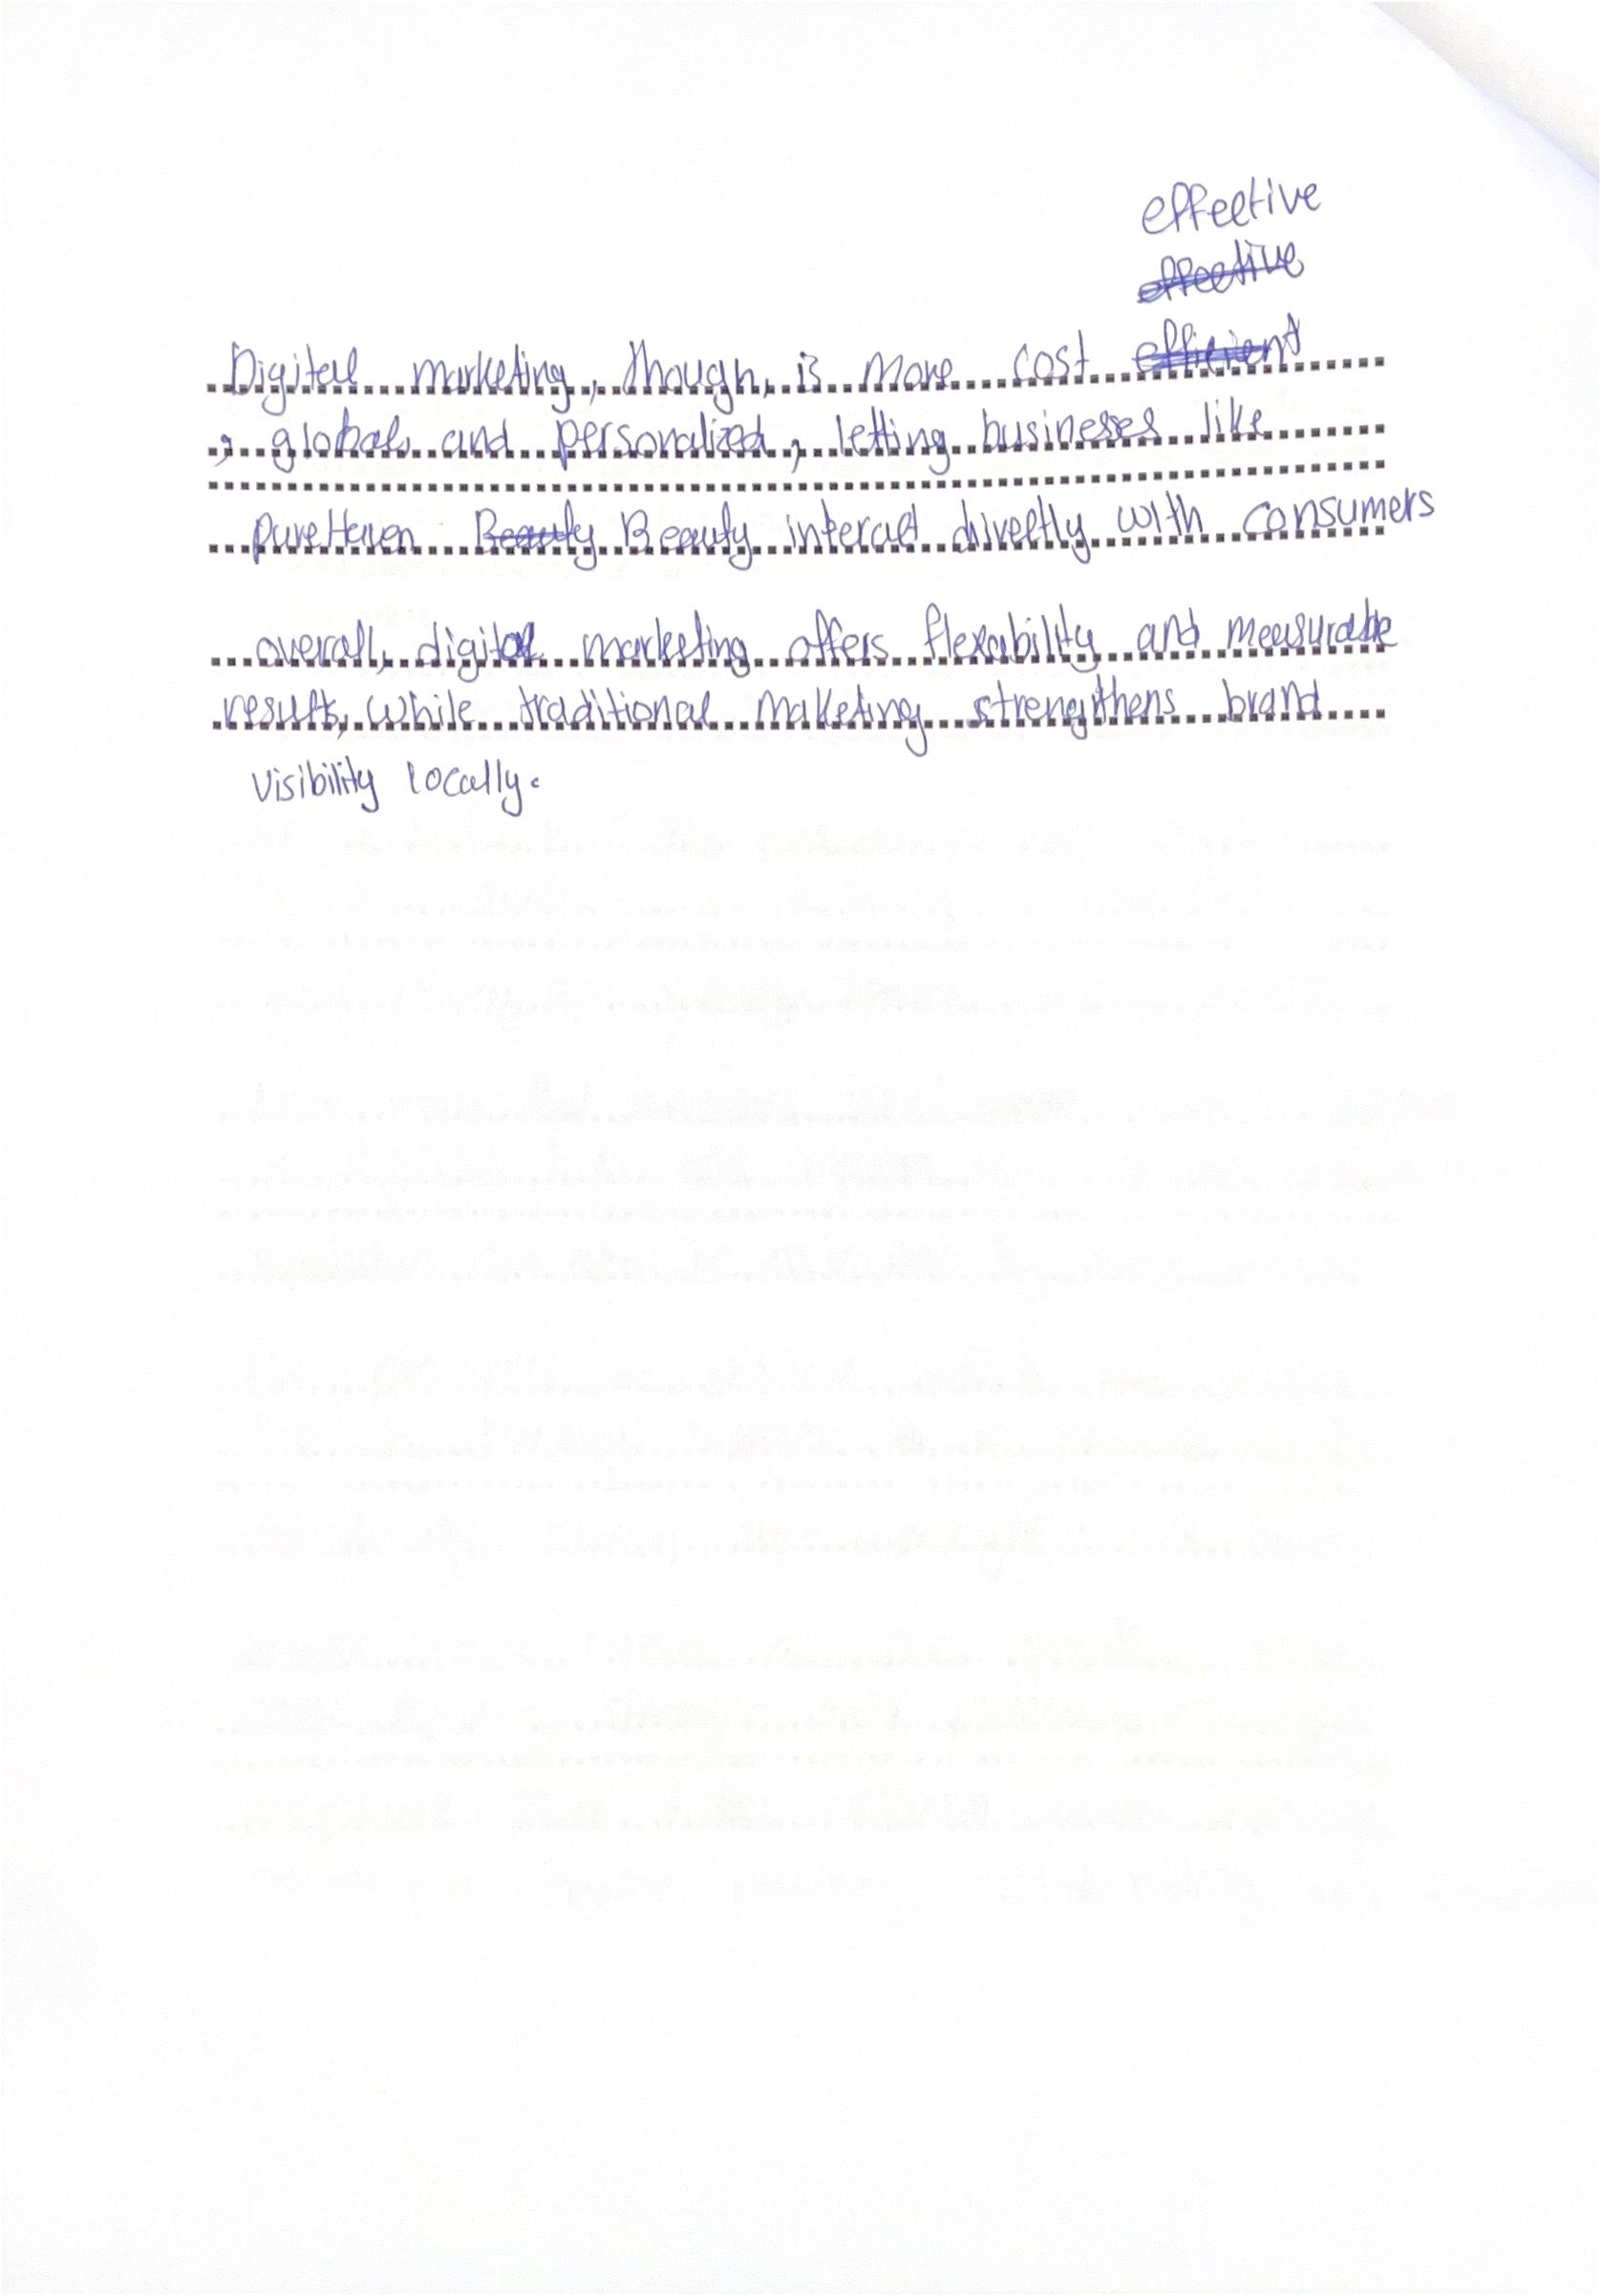 effective
effective
Digital marketing, though, is more cost efficient
, global, and personalized, letting businesses like
pureHaven Beauty Beauty interact directly with consumers
overall, digital marketing offers flexability and measurable
results, while traditional maketing strengthens brand
visibility locally.